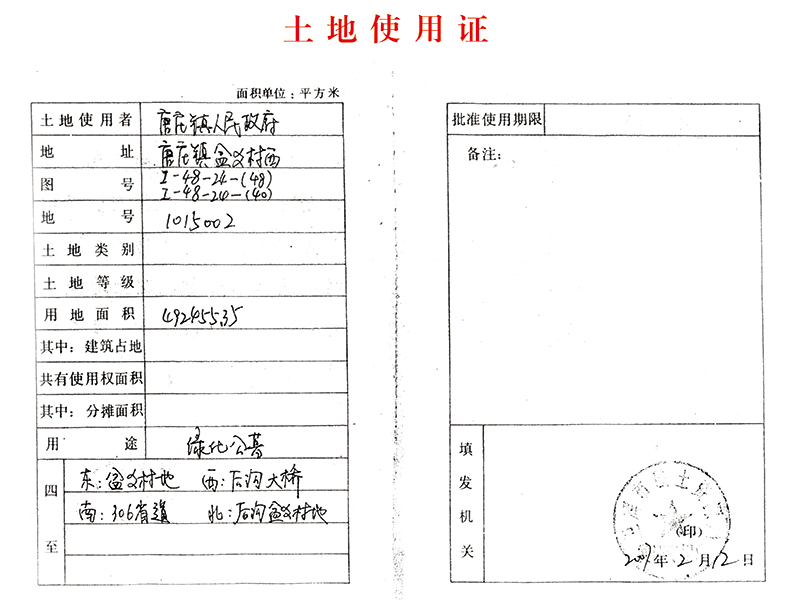 土地使用证
面积单位：平方米
土地使用者 唐庄镇人民政府
地址 唐庄镇盆义村西
图号 I-48-24-(48)
I-48-24-(40)
地号 1015002
土地类别
土地等级
用地面积
其中：建筑占地
共有使用权面积
其中：分摊面积
用途 绿化公墓
四至
东：盆义村地 西：后沟大桥
南：306省道 北：后沟盆义村地
批准使用期限
备注：
填发机关
(印)
2007年2月12日